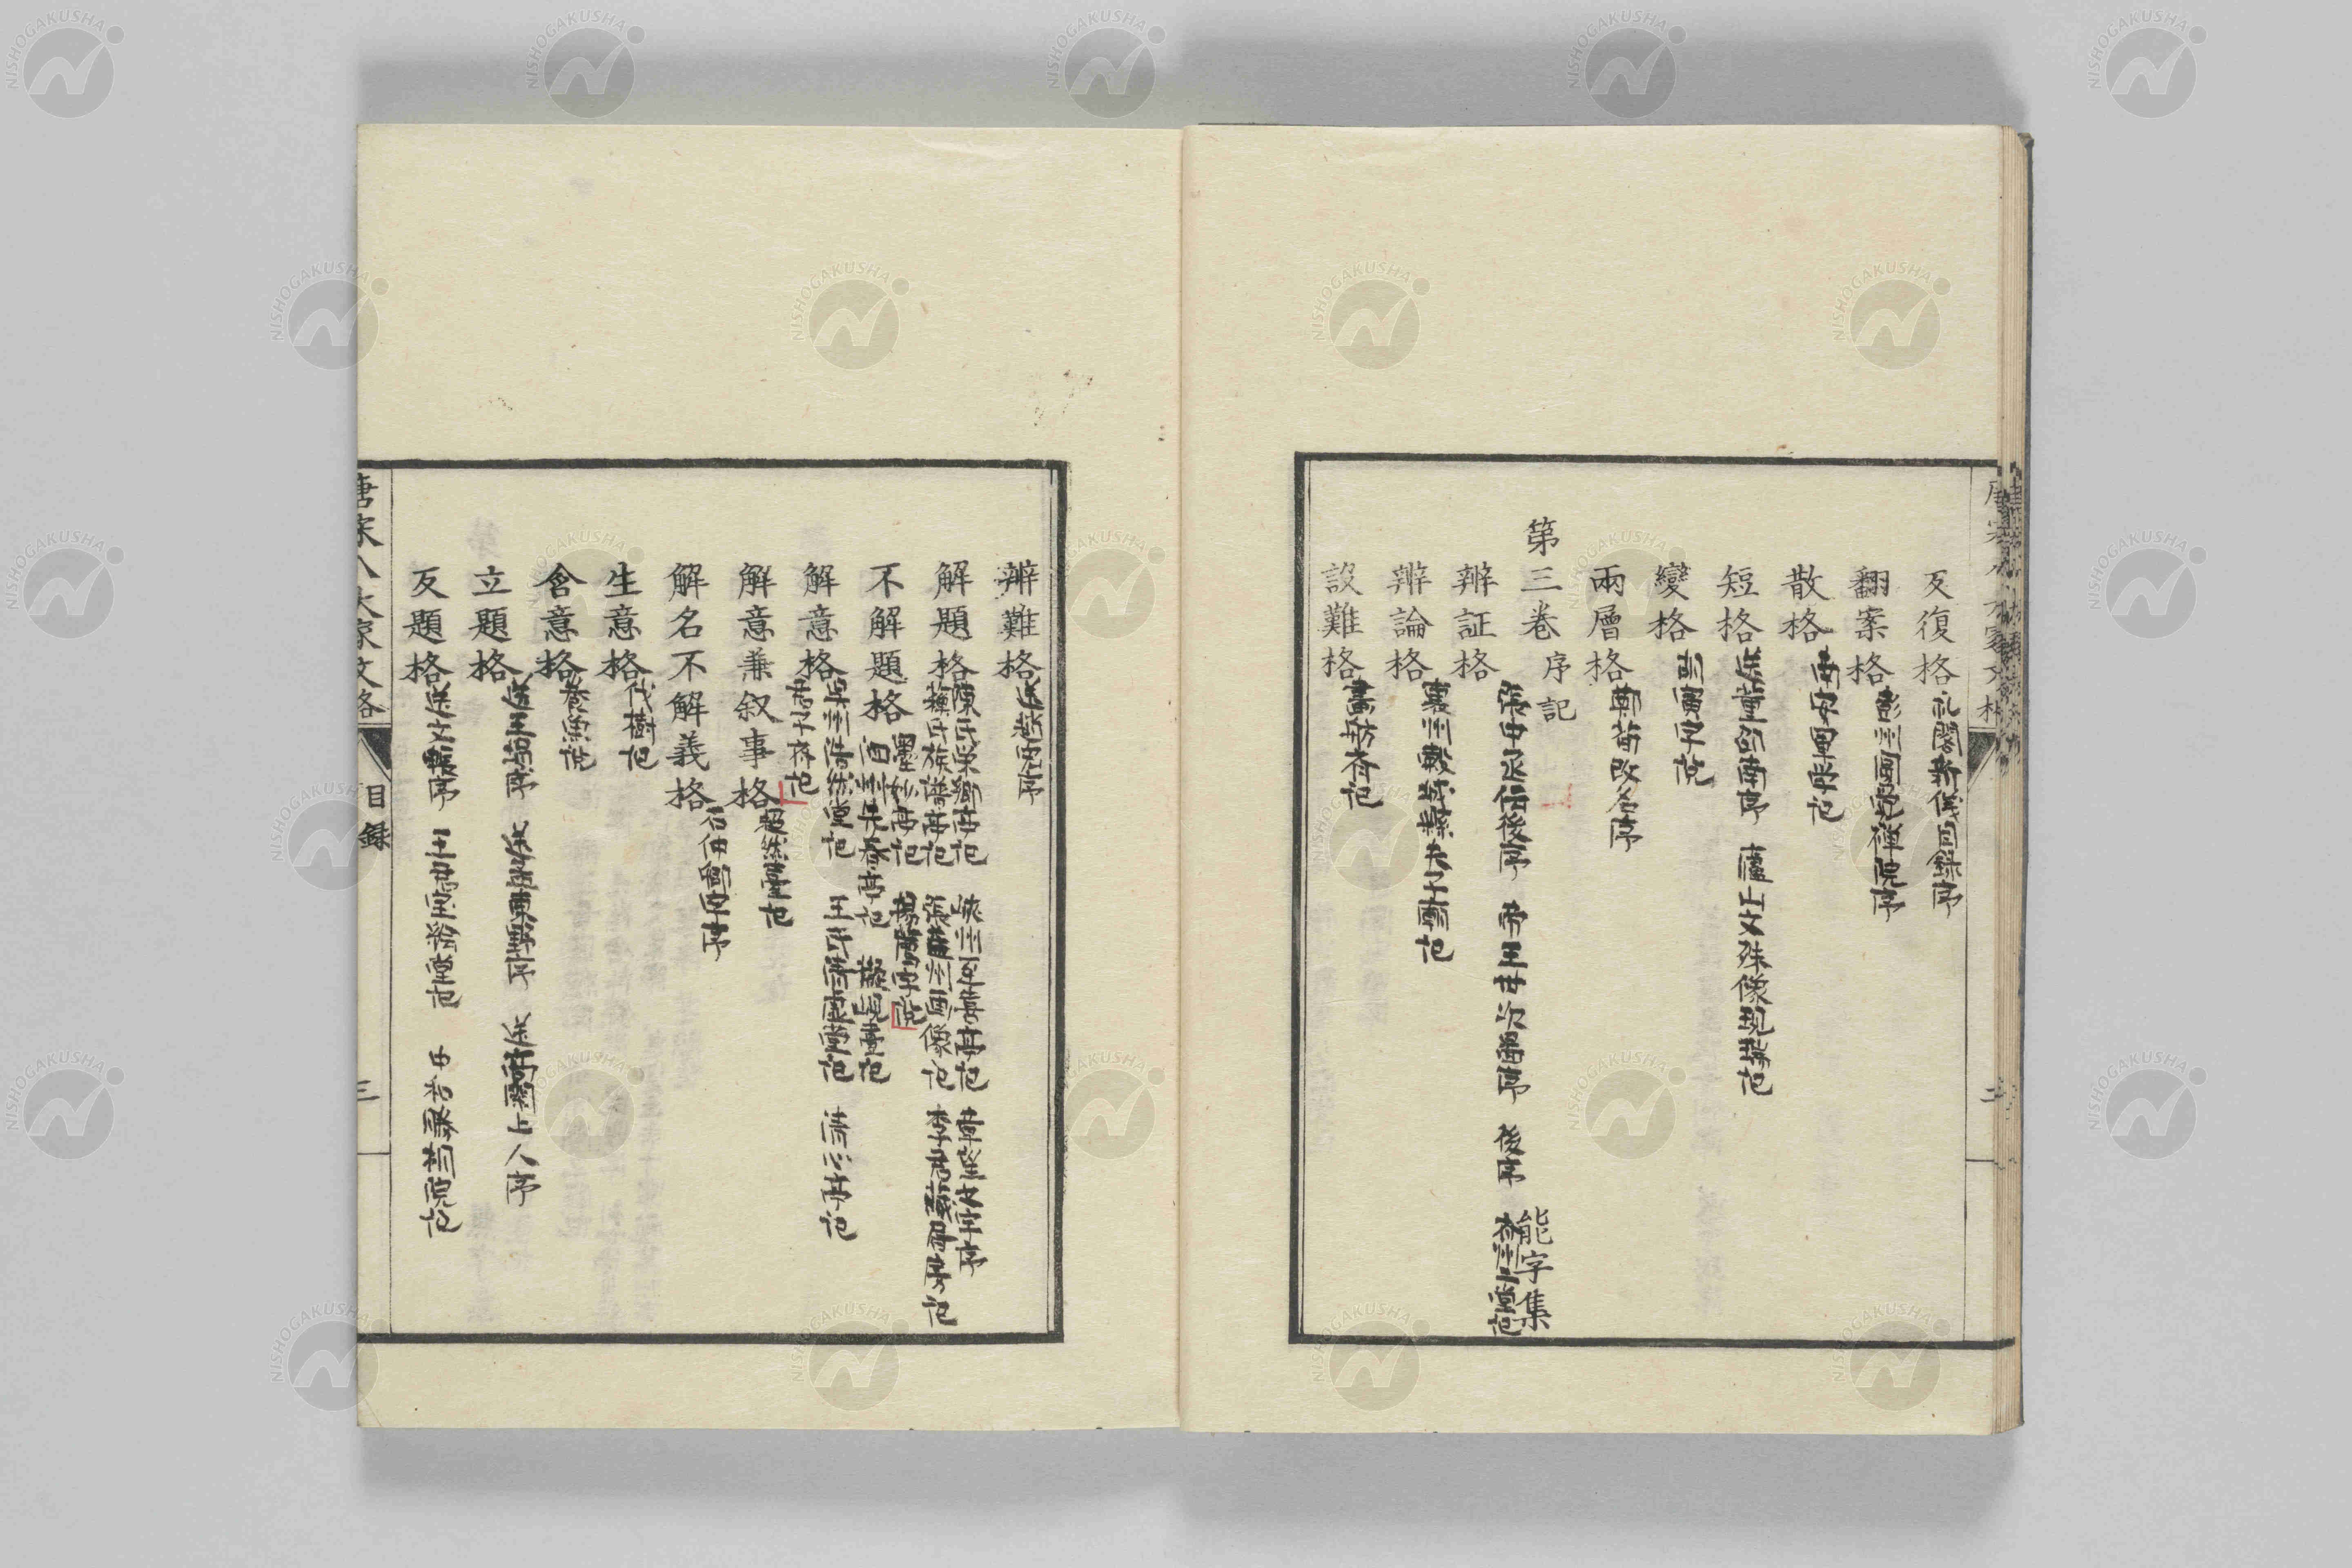 反復格 礼閣新儀目録序
翻案格 彭州圓覺禅院序
散格 南安軍学記
短格 送董邵南序 廬山文殊像現験記
變格 訓寅字説
兩層格 鄭荀改名序
第三巻 序記 能字集
辨証格 張中丞伝後序 帝王世次図序 後序
辨論格 襄州穀城縣夫子廟記
設難格 畫舫斎記
辨難格
解題格 陳氏栄郷亭記 峡州至喜亭記 章望之字序
蘇氏族譜亭記 張益州画像記 李君蔵書房記
不解題格 墨妙亭記 楊薦字説
泗州先春亭記 擬峴臺記
解意格 吴州浩然堂記 王氏清虚堂記 清心亭記
君子斎記
解意兼叙事格 超然臺記
解名不解義格 石仲卿字序
生意格 伐樹記
含意格 養魚記
立題格 送王塤序 送孟東野序 送高閑上人序
反題格 送文暢序 王君宝絵堂記 中和勝相院記
唐宋八大家文格 目録 三
NISHOGAKUSHA